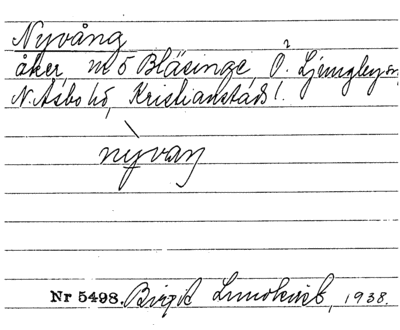 Nyvång
åker, n:o 5 Bläsinge, Ö. Ljungby sn,
N. Åsbo hd, Kristianstads l.
nỳvaŋ
Nr 5498. Birgit 1938.